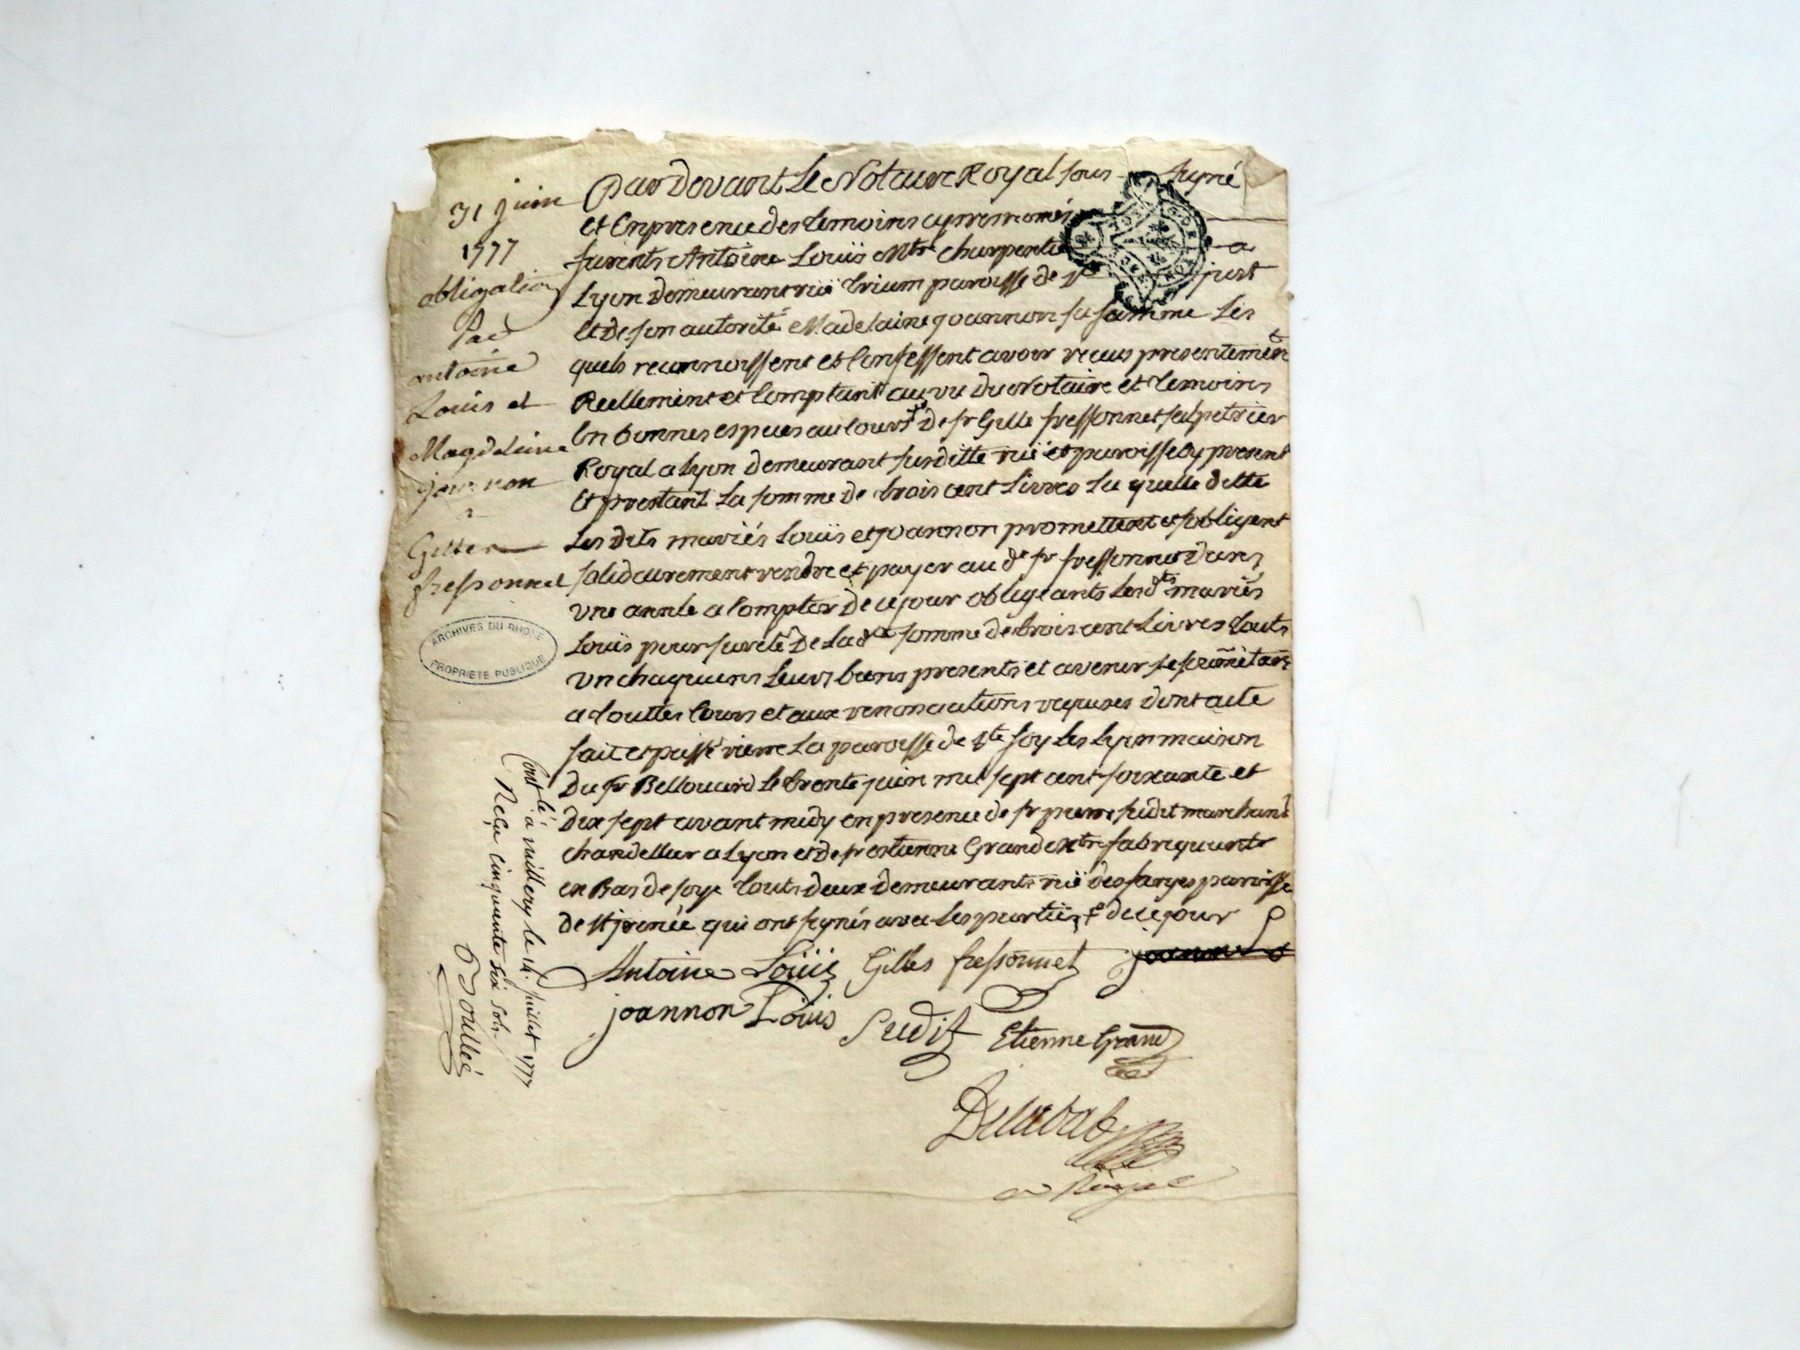 31 juin
1777
obligation
Par
antoine
Louis et
Magdelaine
joannon
a
Gilles
fressonnet
ARCHIVES DU RHONE
PROPRIETE PUBLIQUE
Par Devant Le Notaire Royal sous signé
et En presence des temoins cy
furent Antoine Louïs Mtre charpentier a
Lyon demeurant ruë trium paroisse de St just
et de son autorité Madelaine joannon sa famme Les
quels reconnoissent et Confessent avoir recus presentement
Reellement et Comptant au vu du Notaire et temoins
En bonnes especes au cours de sr Gille fressonnet salpetrier
Royal a Lyon demeurant susditte ruë et paroisse cy present
et prestant La somme de trois cent Livres La quelle ditte
Les dits mariés Louïs et joannon promettent et sobligent
solidairement rendre et payer au dt sr fressonnet dans
une année a Compter de ce jour obligeants Lesdts mariés
Louïs pour sureté de Ladte somme de trois cent Livres touts
un chaquuns Leurs biens presents et avenir se
a touttes Cours et aux renonciations requises dont acte
fait et passé riere La paroisse de Ste foy Les Lyon maison
Du sr Bellouard Le trente juin mil sept cent soixante et
Dix sept avant midy en presence de sr pierre sudit marchand
chandellier a Lyon et de sr estienne Grand Mtre fabriquant
en Bas de soye touts deux demeurants ruë des farges paroisse
de St irenée qui ont signés avec Les parties de ce jour
Antoine Louïs Gilles fressonnet
joannon Louis Sudit Etienne Grand
Contlé a millery le 14. juillet 1777
Reçu Cinquante six sols.